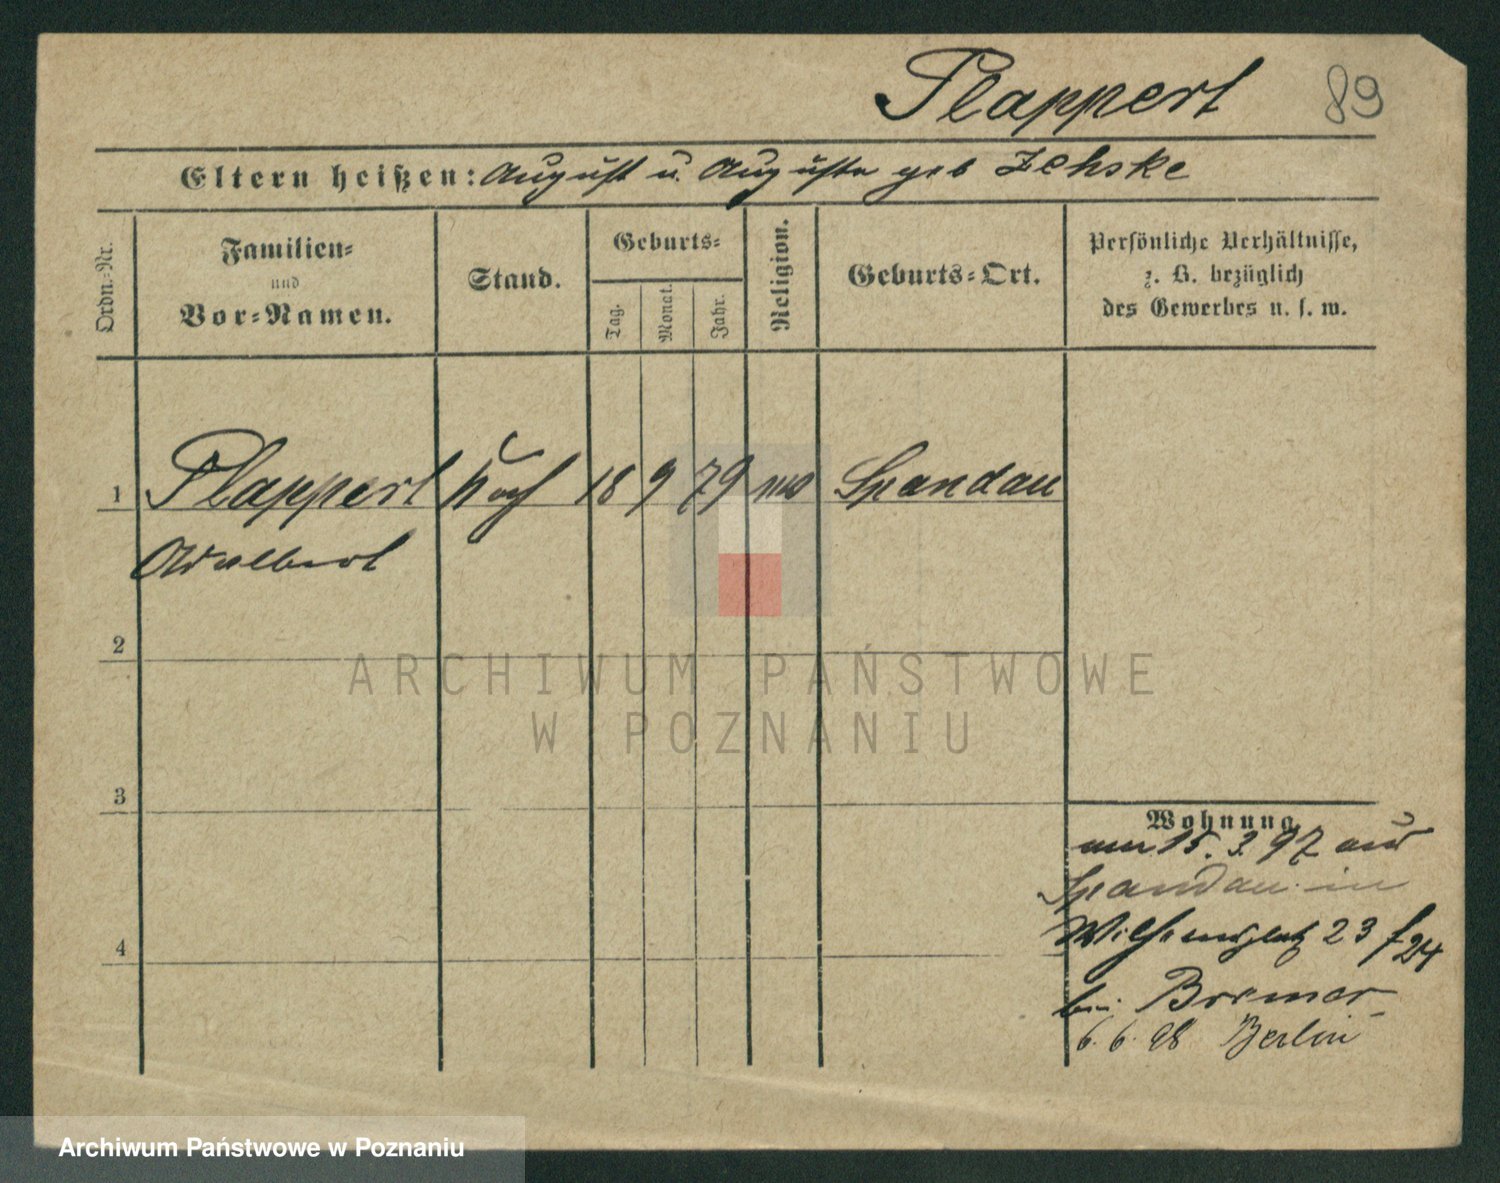 Plappert 89
Eltern heißen: August u. Auguste geb Zehske
Ordn.-Nr.
Familien-
und
Vor-Namen.
Stand.
Geburts-
Tag.
Monat.
Jahr.
Religion.
Geburts-Ort.
Persönliche Verhältnisse,
z. B. bezüglich
des Gewerbes u. s. w.
1 Plappert Koch 18 9 79 Spandau
Adalbert
2
3
4
Wohnung
15. 3. 97 aus
Spandau in
Wilhelmsplatz 23
bei Bremer
6. 6. 98 Berlin
ARCHIWUM PAŃSTWOWE
W POZNANIU
Archiwum Państwowe w Poznaniu